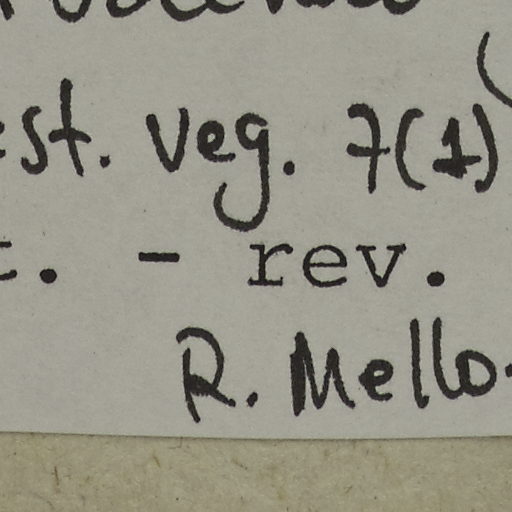 est. veg. 7(1)
t. - rev.
R. Mello.